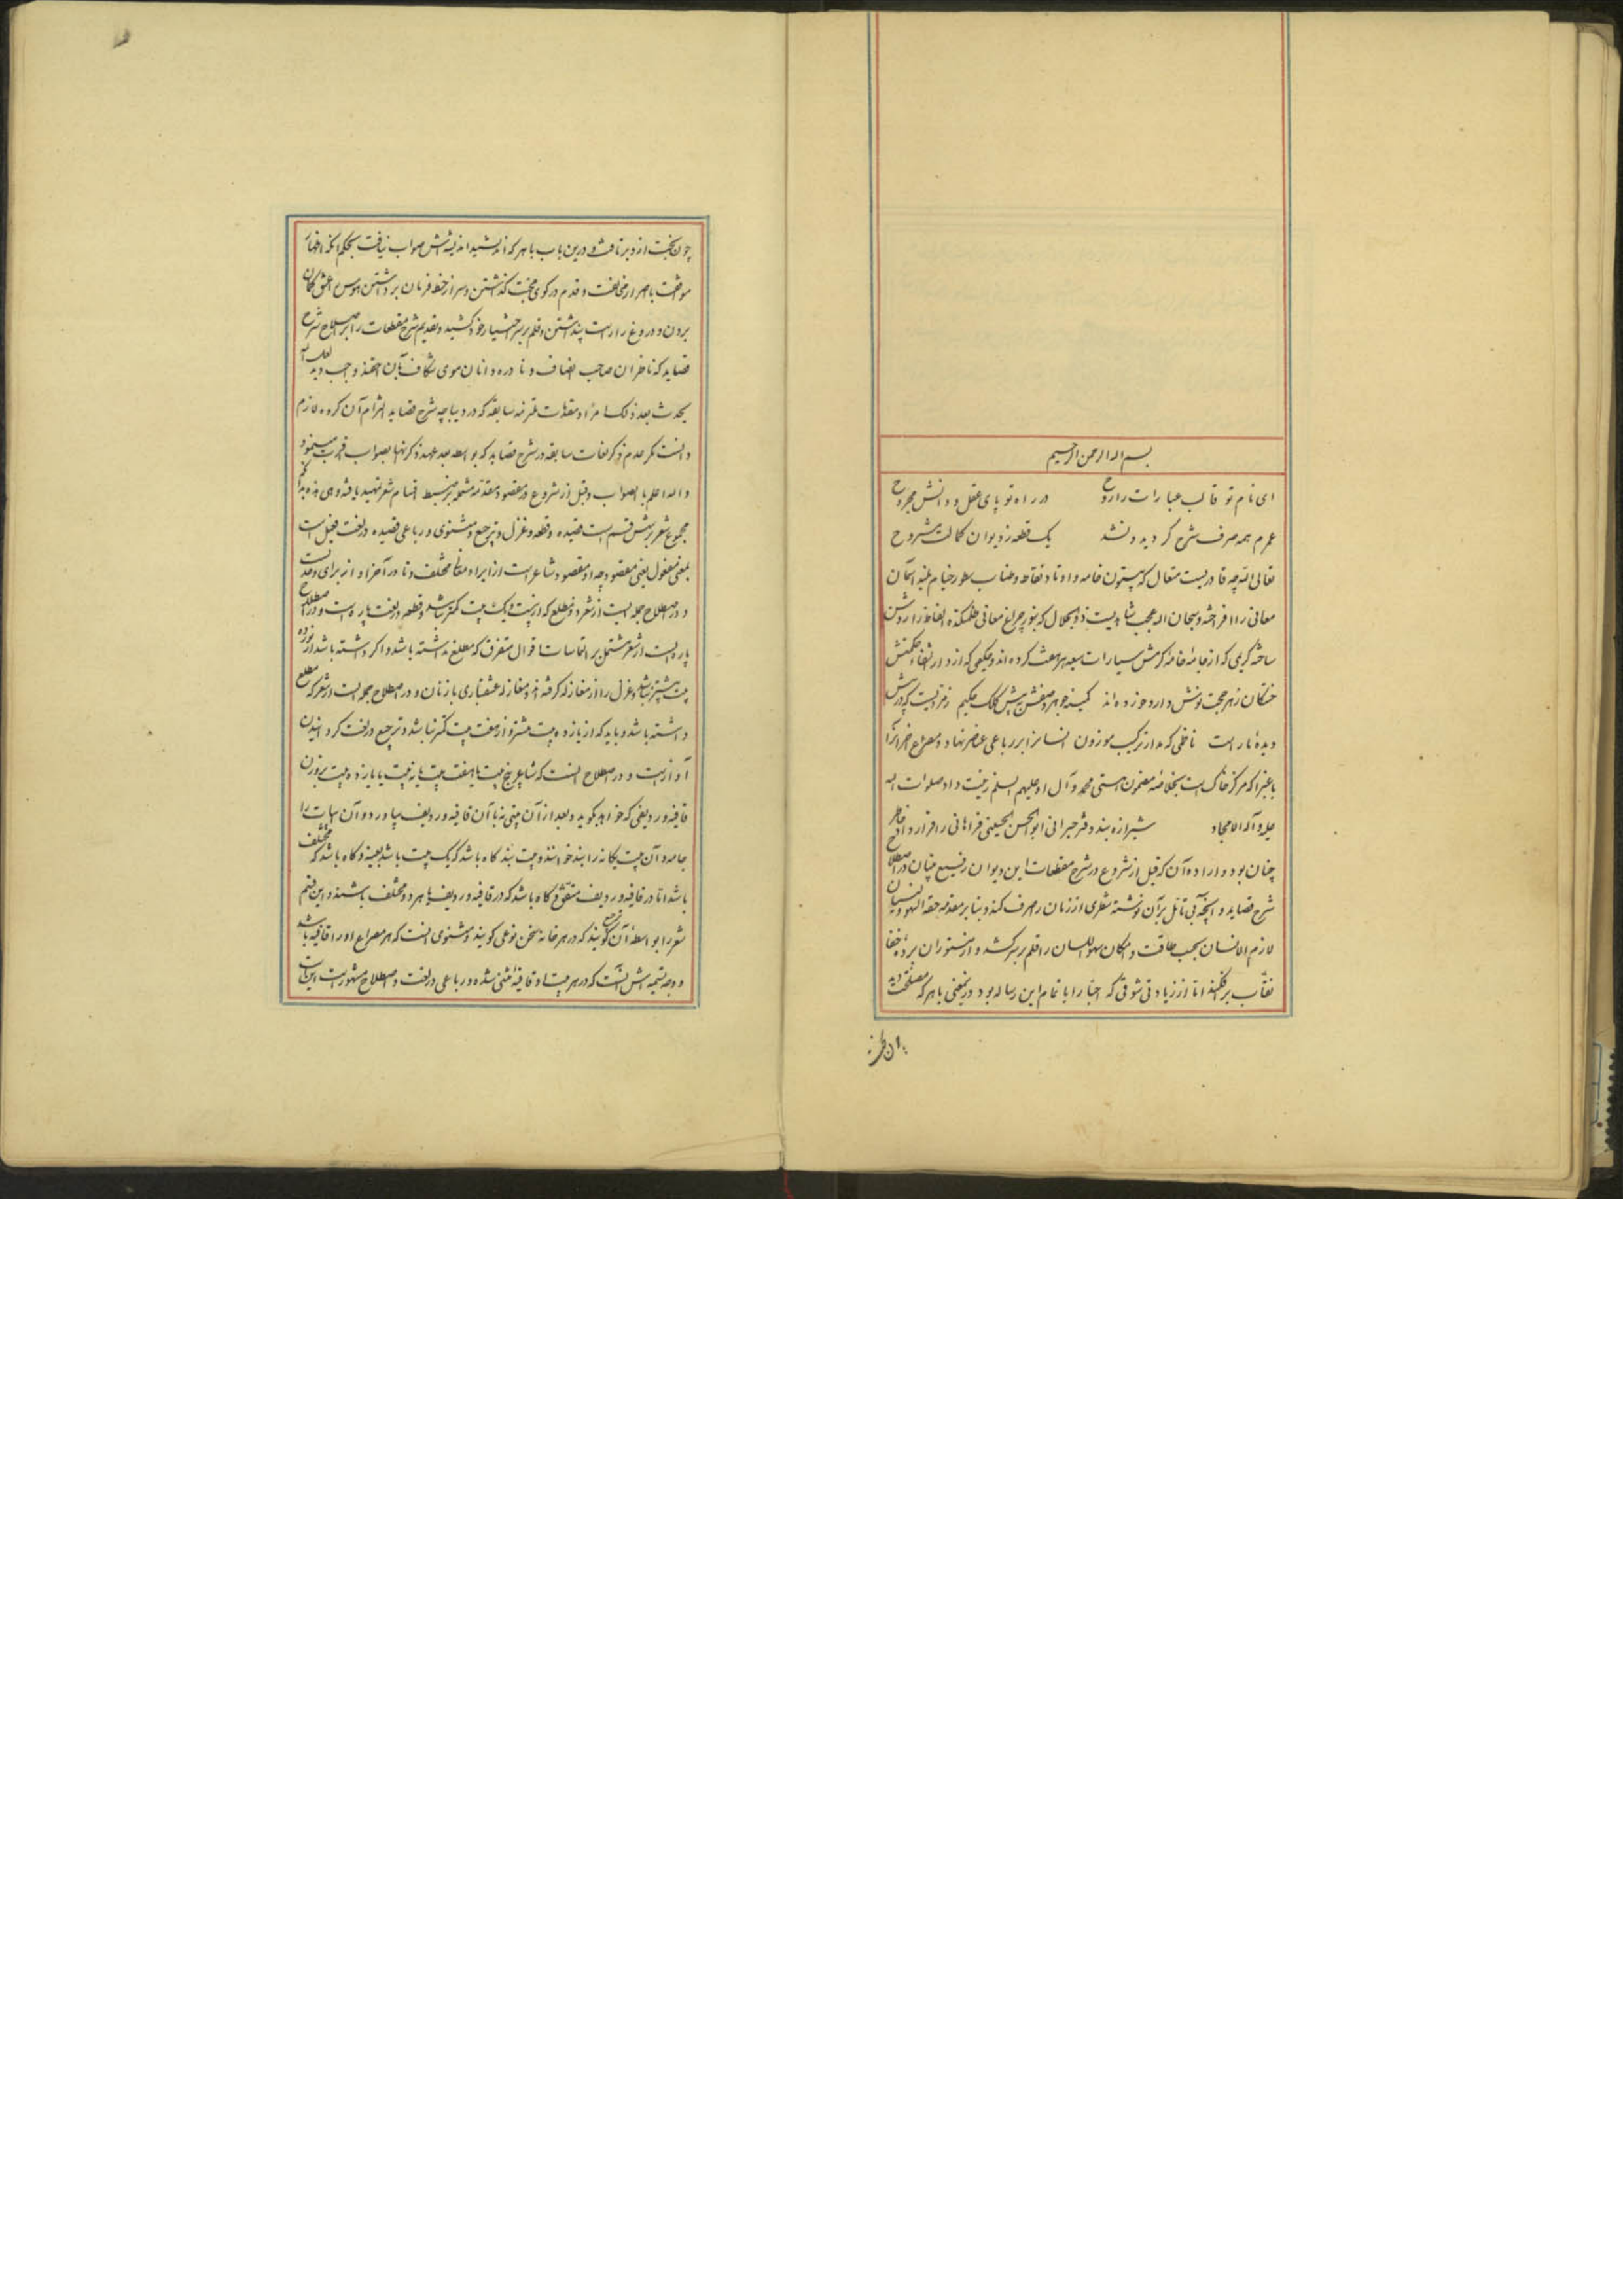 بسم الله الرحمن الرحیم
ای نام تو قالب عبارات را روح در راه تو پای عقل و دانش مجروح
عمرم همه صرف شرح کردید و نشد یک قطعه ز دیوان کمالت مشروح
تعالی الله چه قادریست متعال که بستون خامه و اوتاد نقاط و طناب سطور خیام بلند آسمان
معانی را افراخته و سبحان الله عجب شاهدیست ذوالجلال که بنور چراغ معانی ظلمتکده الفاظ را روشن
ساخته کریمی که از خامهٔ کرمش سیارات سبعه بر هفت کرده‌اند و حکیمی که از دار الشفاء حکمتش
خستکان زهر محبت نوش دارو خورده‌اند پیش کلک حکیم
دیدهٔ مار است ناظمی که مدار ترکیب موزون انسانرا بر رباعی عناصر نهاد و مصراع
مرکز خاک است بخلاصه مضمون هستی محمد و آل او علیهم السلم زینت داد صلوات الله
علیه و آله الامجاد شیرازه بند دفتر حیرانی ابو الحسن الحسینی فراهانی را قرار داد خاطر
چنان بود و اراده آن که قبل از شروع در شرح مقطعات این دیوان رفیع بنیان در اصلاح
شرح قصاید و آنچه بی تأمل بر آن نوشته شطری از زمان صرف کند و بنا بر مقدمه حقه السهو و النسیان
لازم الانسان بحسب طاقت و امکان سهو اللسان را قلم بر سر کشد و از مستوران پرده خفا
نقاب برافکند اما از زیادتی شوقی که احبا را با تمام این رساله بود درینمعنی با هر که مصلحت دید
چون بخت ازو برتافت و درین باب با هر که اندیشید اندیشه‌اش صواب نیافت بحکم آنکه اظهار
موافقت با اصرار مخالفت و قدم در کوی محبت گذاشتن و سر از خط فرمان برداشتن هوس عشق گمان
بردن و دروغ راراست پنداشتن و قلم بر سر اختیار خود کشید و تقدیم شرح مقطعات را بر اصلاح شرح
قصاید که ناظران صاحب انصاف و نادره دانان موی شکاف بآن احقند واجب دید لعل الله
یحدث بعد ذلک امرا و مقدمات ملتزمه سابقه که در دیباچه شرح قصاید التزام آن کرده لازم
دانست مکر عدم ذکر لغات سابقه در شرح قصاید که بواسطه بعد عهد ذکر آنها بصواب اقرب مینمود
و الله اعلم بالصواب و قبل از شروع در مقصود مقدمه مشتمل بر ضبط اقسام شعر تمهید یافته و هی هذه بدانکه
مجموع شعر بر شش قسم است قصیده و قطعه و غزل و ترجیع و مثنوی و رباعی قصیده در لغت فعیل است
بمعنی مفعول یعنی مقصود چه او مقصود شاعر است از ایراد معانی مختلف و تا در آخر او از برای وحدتست
و در اصطلاح جمله ایست از شعر ذو مطلع که از بیست و یک بیت کمتر نباشد و قطعه در لغت پاره است و در اصطلاح
پاره ایست از شعر مشتمل بر التماسات اقوال متفرق که مطلع نداشته باشد و اگر داشته باشد از نوزده
بیت بیشتر نباشد و غزل را از مغازله گرفته‌اند و مغازله عشقبازی با زنان و در اصطلاح جمله ایست از شعر که مطلع
داشته باشد و باید که از یازده بیت بیشتر و از هفت بیت کمتر نباشد و ترجیع در لغت گردانیدن
آواز است و در اصطلاح آنست که شاعر پنج بیت یا هفت بیت یا نه بیت یا یازده بیت بر وزن
قافیه و ردیفی که خواهد بگوید و بعد از آن بیتی نه با آن قافیه و ردیف بیاورد و آن ابیات را
خانه و آن بیت بیگانه را بند خوانند و بیت بند گاه باشد که یک بیت باشد بعینه و گاه باشد که مختلف
باشد اما در قافیه و ردیف متفق و گاه باشد که در قافیه و ردیف یا هر دو مختلف باشند و این قسم
شعر را بواسطهٔ آن ترجیع گویند که در هر خانه سخن نوعی گویند و مثنوی آنست که هر مصراع او را قافیه باشد
و وجه تسمیه‌اش آنست که در هر بیت او قافیه مثنی شده و رباعی در لغت و اصطلاح مشهور است